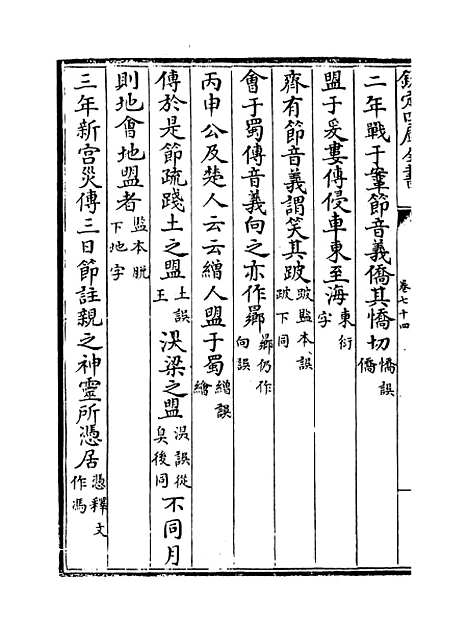 欽定四庫全書
卷七十四
二年戰于鞌節音義僑其憍切 憍誤僑
盟于爰婁傳侵車東至海 東衍字
齊有節音義謂笑其跛 跛監本誤跛下同
會于蜀傳音義向之亦作鄉 鄉仍作向誤
丙申公及楚人云云繒人盟于蜀 繒誤繪
傳於是節疏踐土之盟 土誤王 湨梁之盟 湨誤從臭後同 不同月
則地會地盟者 監本脫下地字
三年新宮災傳三日節註親之神靈所憑居 憑釋文作馮